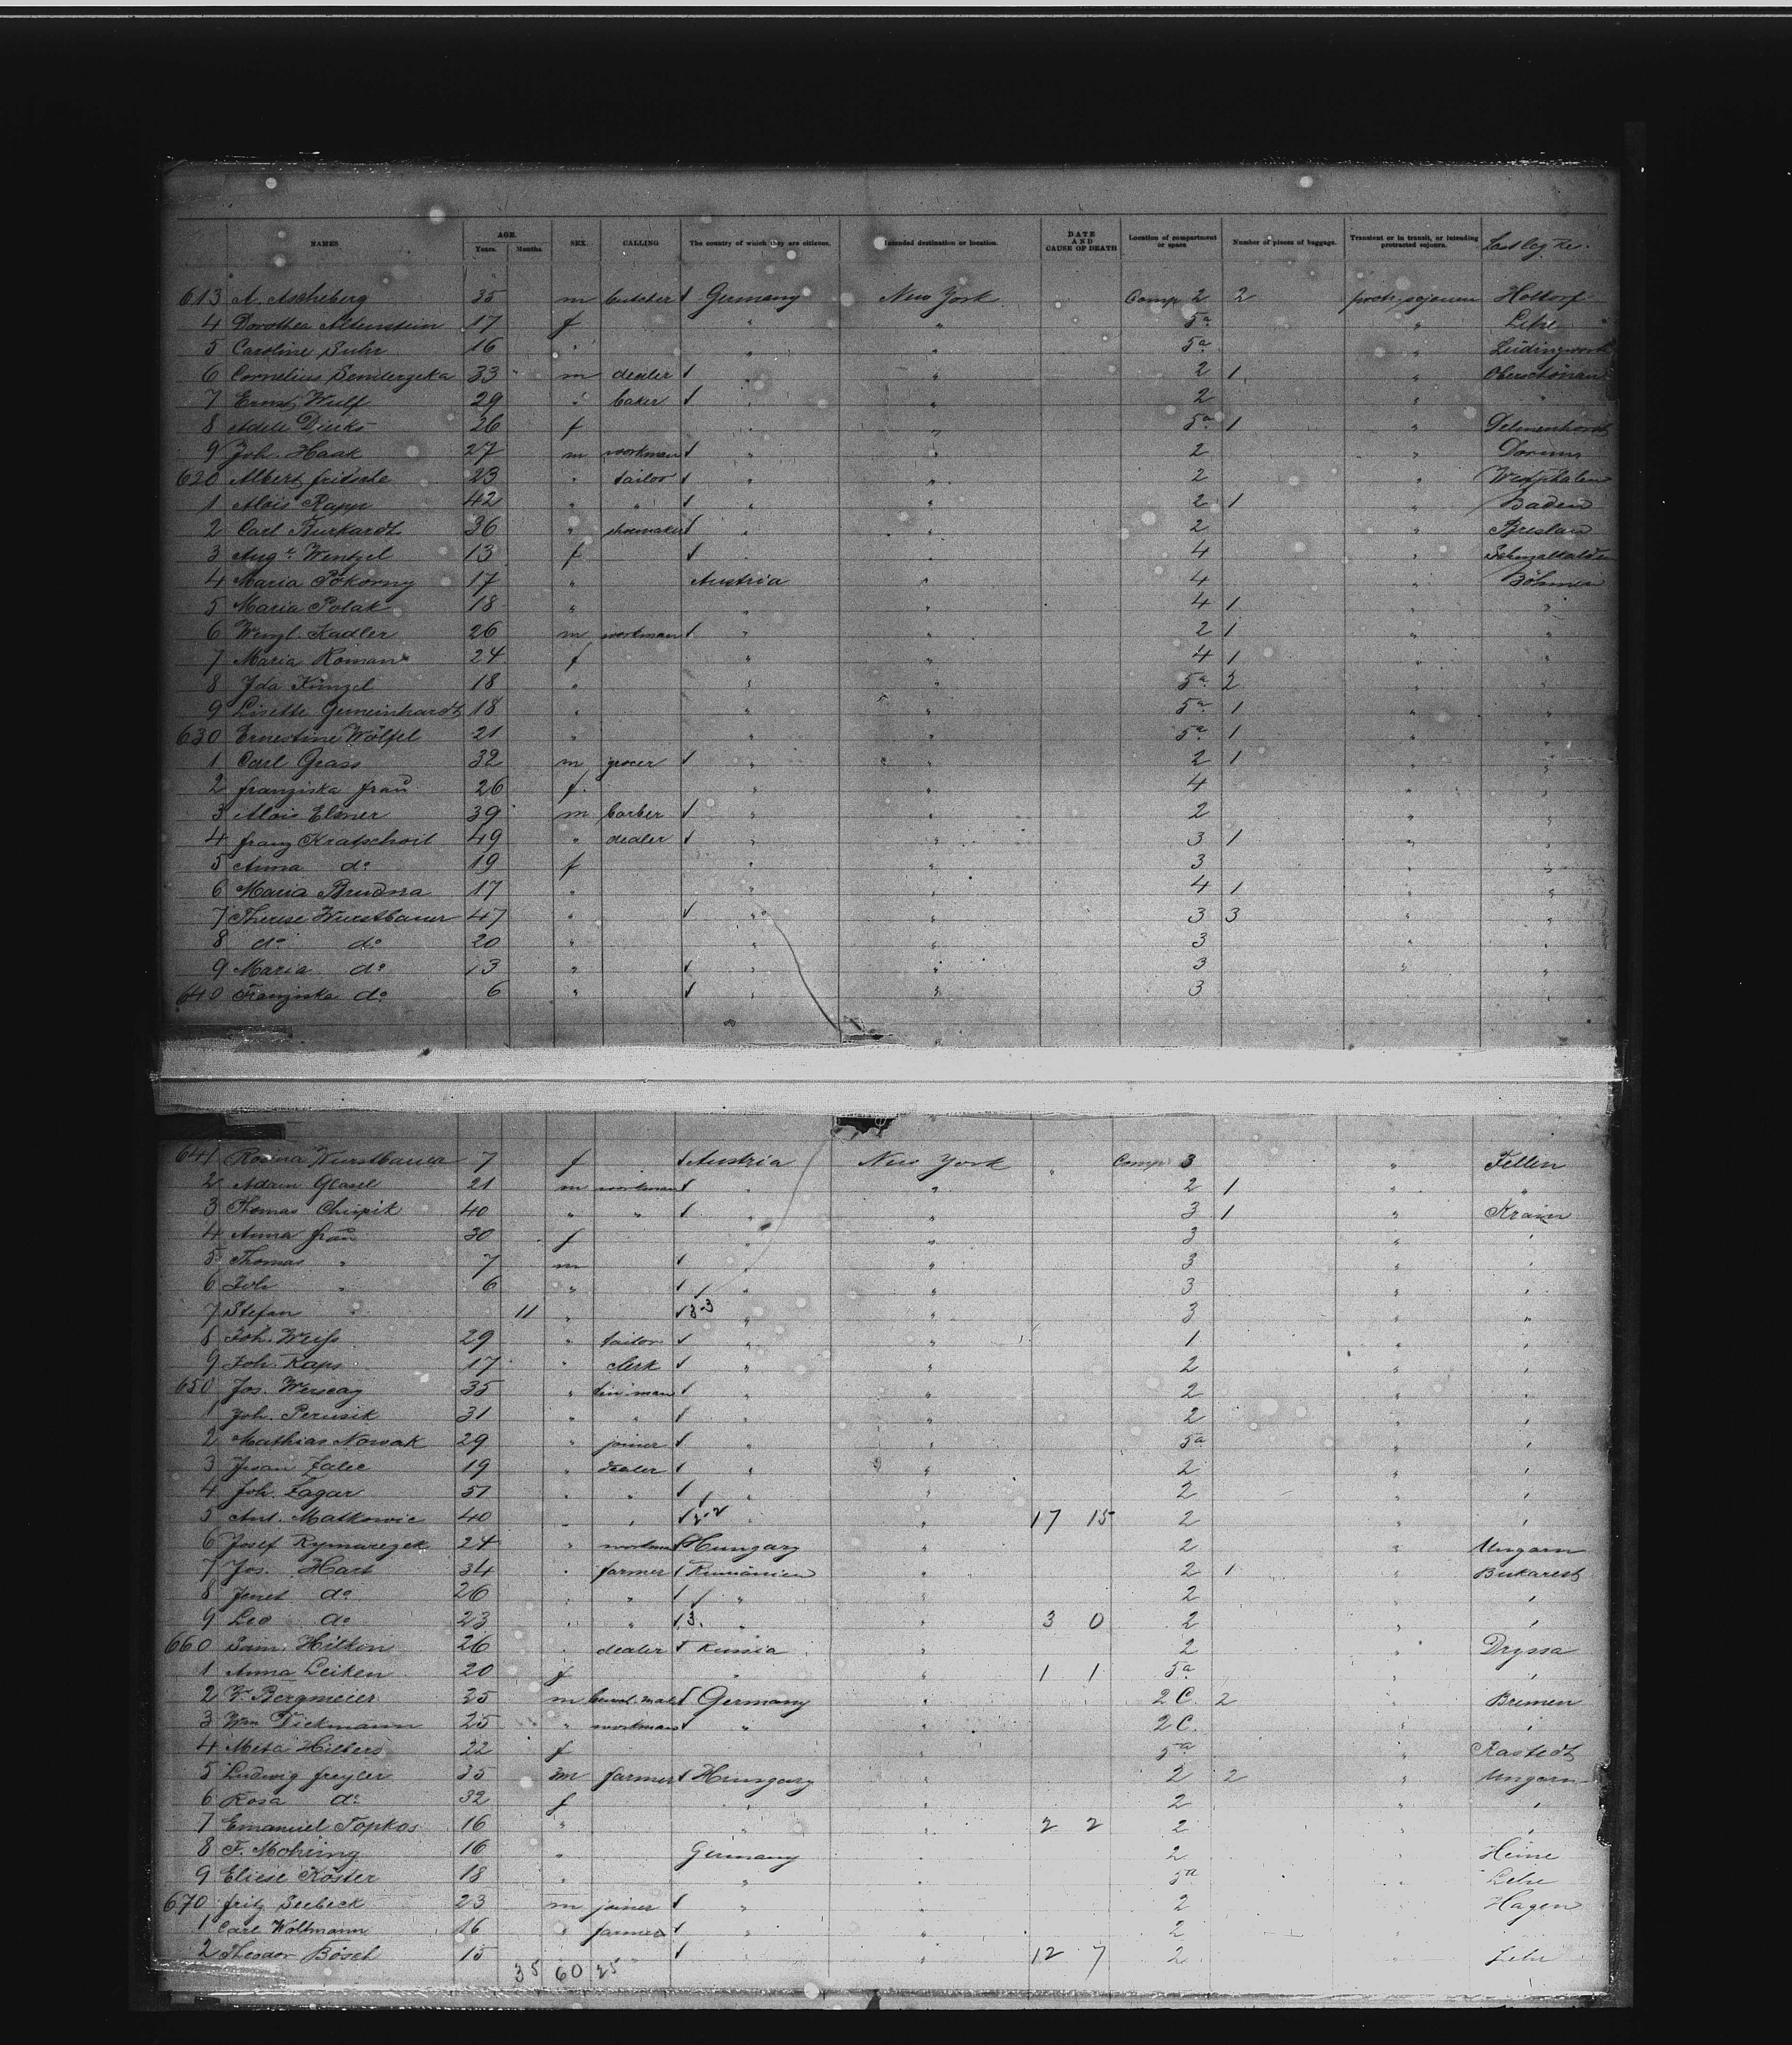 NAMES AGE. Years. Months. SEX. CALLING The country of which they are citizens. Intended destination or location. DATE AND CAUSE OF DEATH Location of compartment or space Number of pieces of baggage. Transient or in transit, or intending protracted sojourn. Last leg. Re.
613 A. Ascheberg 35 m butcher Germany New York Comp 2 2 protr. sojourn Holtorf
4 Dorothea Altenstein 17 f " " 5a " Lehe
5 Caroline Suhr 16 " " " 5a " Lüdingworth
6 Cornelius 33 m dealer " " 2 1 "
7 Ernst Wulf 29 " baker " " 2 " "
8 Adele Dierks 26 f " " 5a 1 " Delmenhorst
9 Joh. Haak 27 m workman " " 2 " Dorum
620 Albert Fritsche 23 " tailor " " 2 " Westphalen
1 Alois Rapp 42 " " " " 2 1 " Baden
2 Carl Burkardt 36 " shoemaker " " 2 " Breslau
3 Auge Wentzel 13 f " " 4 " Schmalkalden
4 Maria Pokorny 17 " Austria " 4 " Böhmen
5 Maria Polak 18 " " " 4 1 " "
6 Wenzl. Kadler 26 m workman " " 2 1 " "
7 Maria Roman 24 f " " 4 1 " "
8 Ida Künzel 18 " " " 5a 2 " "
9 Lisette Gemeinhardt 18 " " " 5a 1 " "
630 Ernestine Wölfel 21 " " " 5a 1 " "
1 Carl Grass 32 m grocer " " 2 1 " "
2 Franziska frau 26 f " " 4 " "
3 Alois Elsner 39 m barber " " 2 " "
4 Franz Kratschvil 49 " dealer " " 3 1 " "
5 Anna do 19 f " " 3 " "
6 Maria Brudna 17 " " " 4 1 " "
7 Therese Wurstbauer 47 " " " 3 3 " "
8 do do 20 " " " 3 " "
9 Maria do 13 " " " 3 " "
640 Franziska do 6 " " " 3 " "
641 Rosina Wurstbauer 7 f Austria New York " Comp 3 " Fellin
2 Adam Glasel 21 m workman " " 2 1 " "
3 Thomas Chripik 40 " " " " 3 1 " Krain
4 Anna frau 30 f " " 3 " "
5 Thomas " 7 m " " 3 " "
6 Joh " 6 " " " 3 " "
7 Stefan " 11 " 3-3 " " 3 " "
8 Joh. Weiss 29 " tailor " " 1 " "
9 Joh. Kaps 17 " clerk " " 2 " "
650 Jos. 35 " tin'man " " 2 " "
1 Joh. Perusik 31 " " " " 2 " "
2 Mathias Nowak 29 " joiner " " 5a " "
3 Ivan Zalec 19 " dealer " " 2 " "
4 Joh. Zagar 51 " " " " 2 " "
5 Ant. Matkowic 40 " " 2-2 " " 17 15 2 " "
6 Josef Rymarezek 24 " workman Hungary " 2 " Ungarn
7 Jos. Hart 34 " farmer Rumänien " 2 1 " Bukarest
8 Jenet do 26 " " " " 2 " "
9 Leo do 23 " " 3. " " 3 0 2 " "
660 Sam. Hitkon 26 " dealer Russia " 2 " Dryssa
1 Anna Leiken 20 f " " 1 1 5a " "
2 F. Bergmeier 25 m Germany " 2 C. 2 " Bremen
3 Wm Dickmann 25 " workman " " 2 C. " "
4 Meta Hilbers 22 f " 5a " Rastedt
5 Ludwig Freyler 35 m farmer Hungary " 2 2 " Ungarn
6 Rosa do 32 f " " 2 " "
7 Emanuel Topkos 16 " " " 2 2 2 " "
8 F. Mohring 16 " Germany " 2 " Heine
9 Eliese Köster 18 " " " 5a " Lehe
670 Fritz Seebeck 23 m joiner " " 2 " Hagen
1 Carl Woltmann 16 " farmer " " 2
2 Theodor Bösch 15 " " 12 7 2 " Lehe
35 60 25